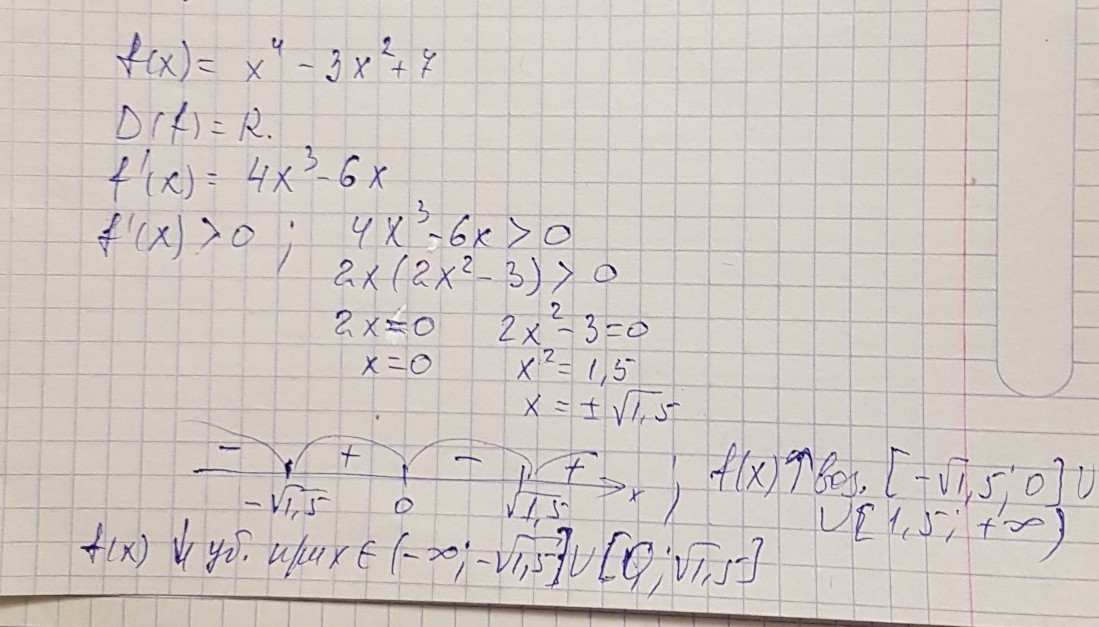 f(x) = x⁴ - 3x² + 7
D(f) = R.
f'(x) = 4x³ - 6x
f'(x) > 0 ; 4x³ - 6x > 0
2x(2x² - 3) > 0
2x = 0 2x² - 3 = 0
x = 0 x² = 1,5
x = ± √1,5
- + - +
-√1,5 0 √1,5 x ; f(x) ↑ воз. [-√1,5; 0] ∪
∪ [1,5; +∞)
f(x) ↓ уб. при x ∈ (-∞; -√1,5] ∪ [0; √1,5]